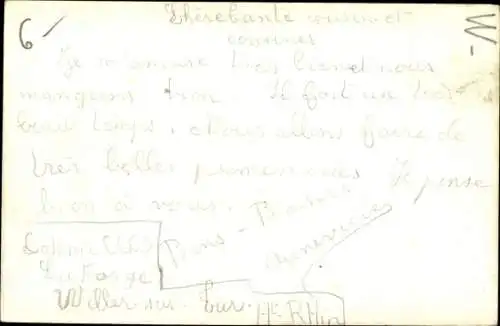 6-
W-
Chère tante cousin et
cousines
Je m'amuse très bien et nous
mangeons bien Il fait un très
beau temps. Nous allons faire de
très belles promenades Je pense
bien à vous.
Bons - Baisers
Colonie
La Forge
Willer-sur-Tur. Ht-Rhin